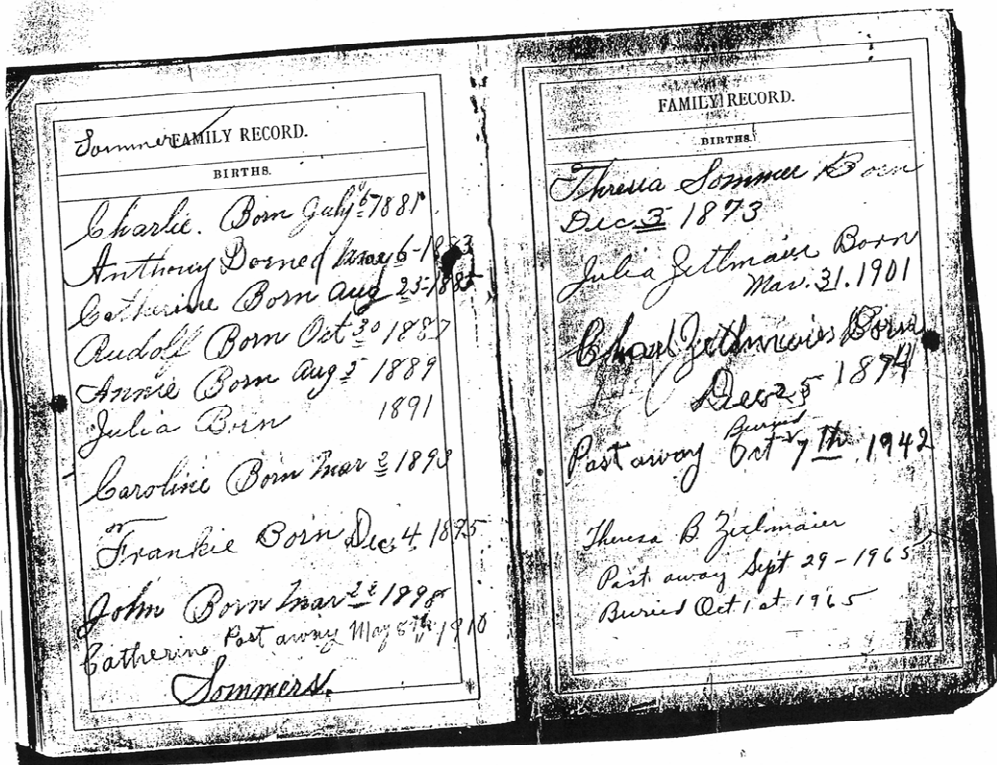 Sommer
FAMILY RECORD.
BIRTHS.
Charlie. Born July 6 1881
Anthony Borned May 6-1883
Catherine Born Aug 25-1885
Rudolf Born Oct 30 1887
Annie Born Aug 5 1889
Julia Born 1891
Caroline Born Mar 2 1893
Frankie Born Dec. 4 1895
John Born Mar 22 1898
Catherine Past away May 8th 1910
Sommers.
FAMILY RECORD.
BIRTHS.
Thresia Sommer Born
Dec 3 1873
Julia Zettmaier Born
Mar. 31. 1901
Born
1874
Dec 25
Buried
Past away Oct 7th 1942
Theresa B. Zeitlmaier
Past away Sept 29-1965
Buried Oct 1st 1965